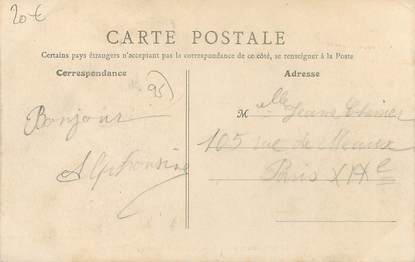 20€
CARTE POSTALE
Certains pays étrangers n'acceptant pas la correspondance de ce côté, se renseigner à la Poste
Correspondance
95
Bonjour
Alphonsine
Adresse
Melle Jeanne
105 rue de Meaux
Paris XIXe